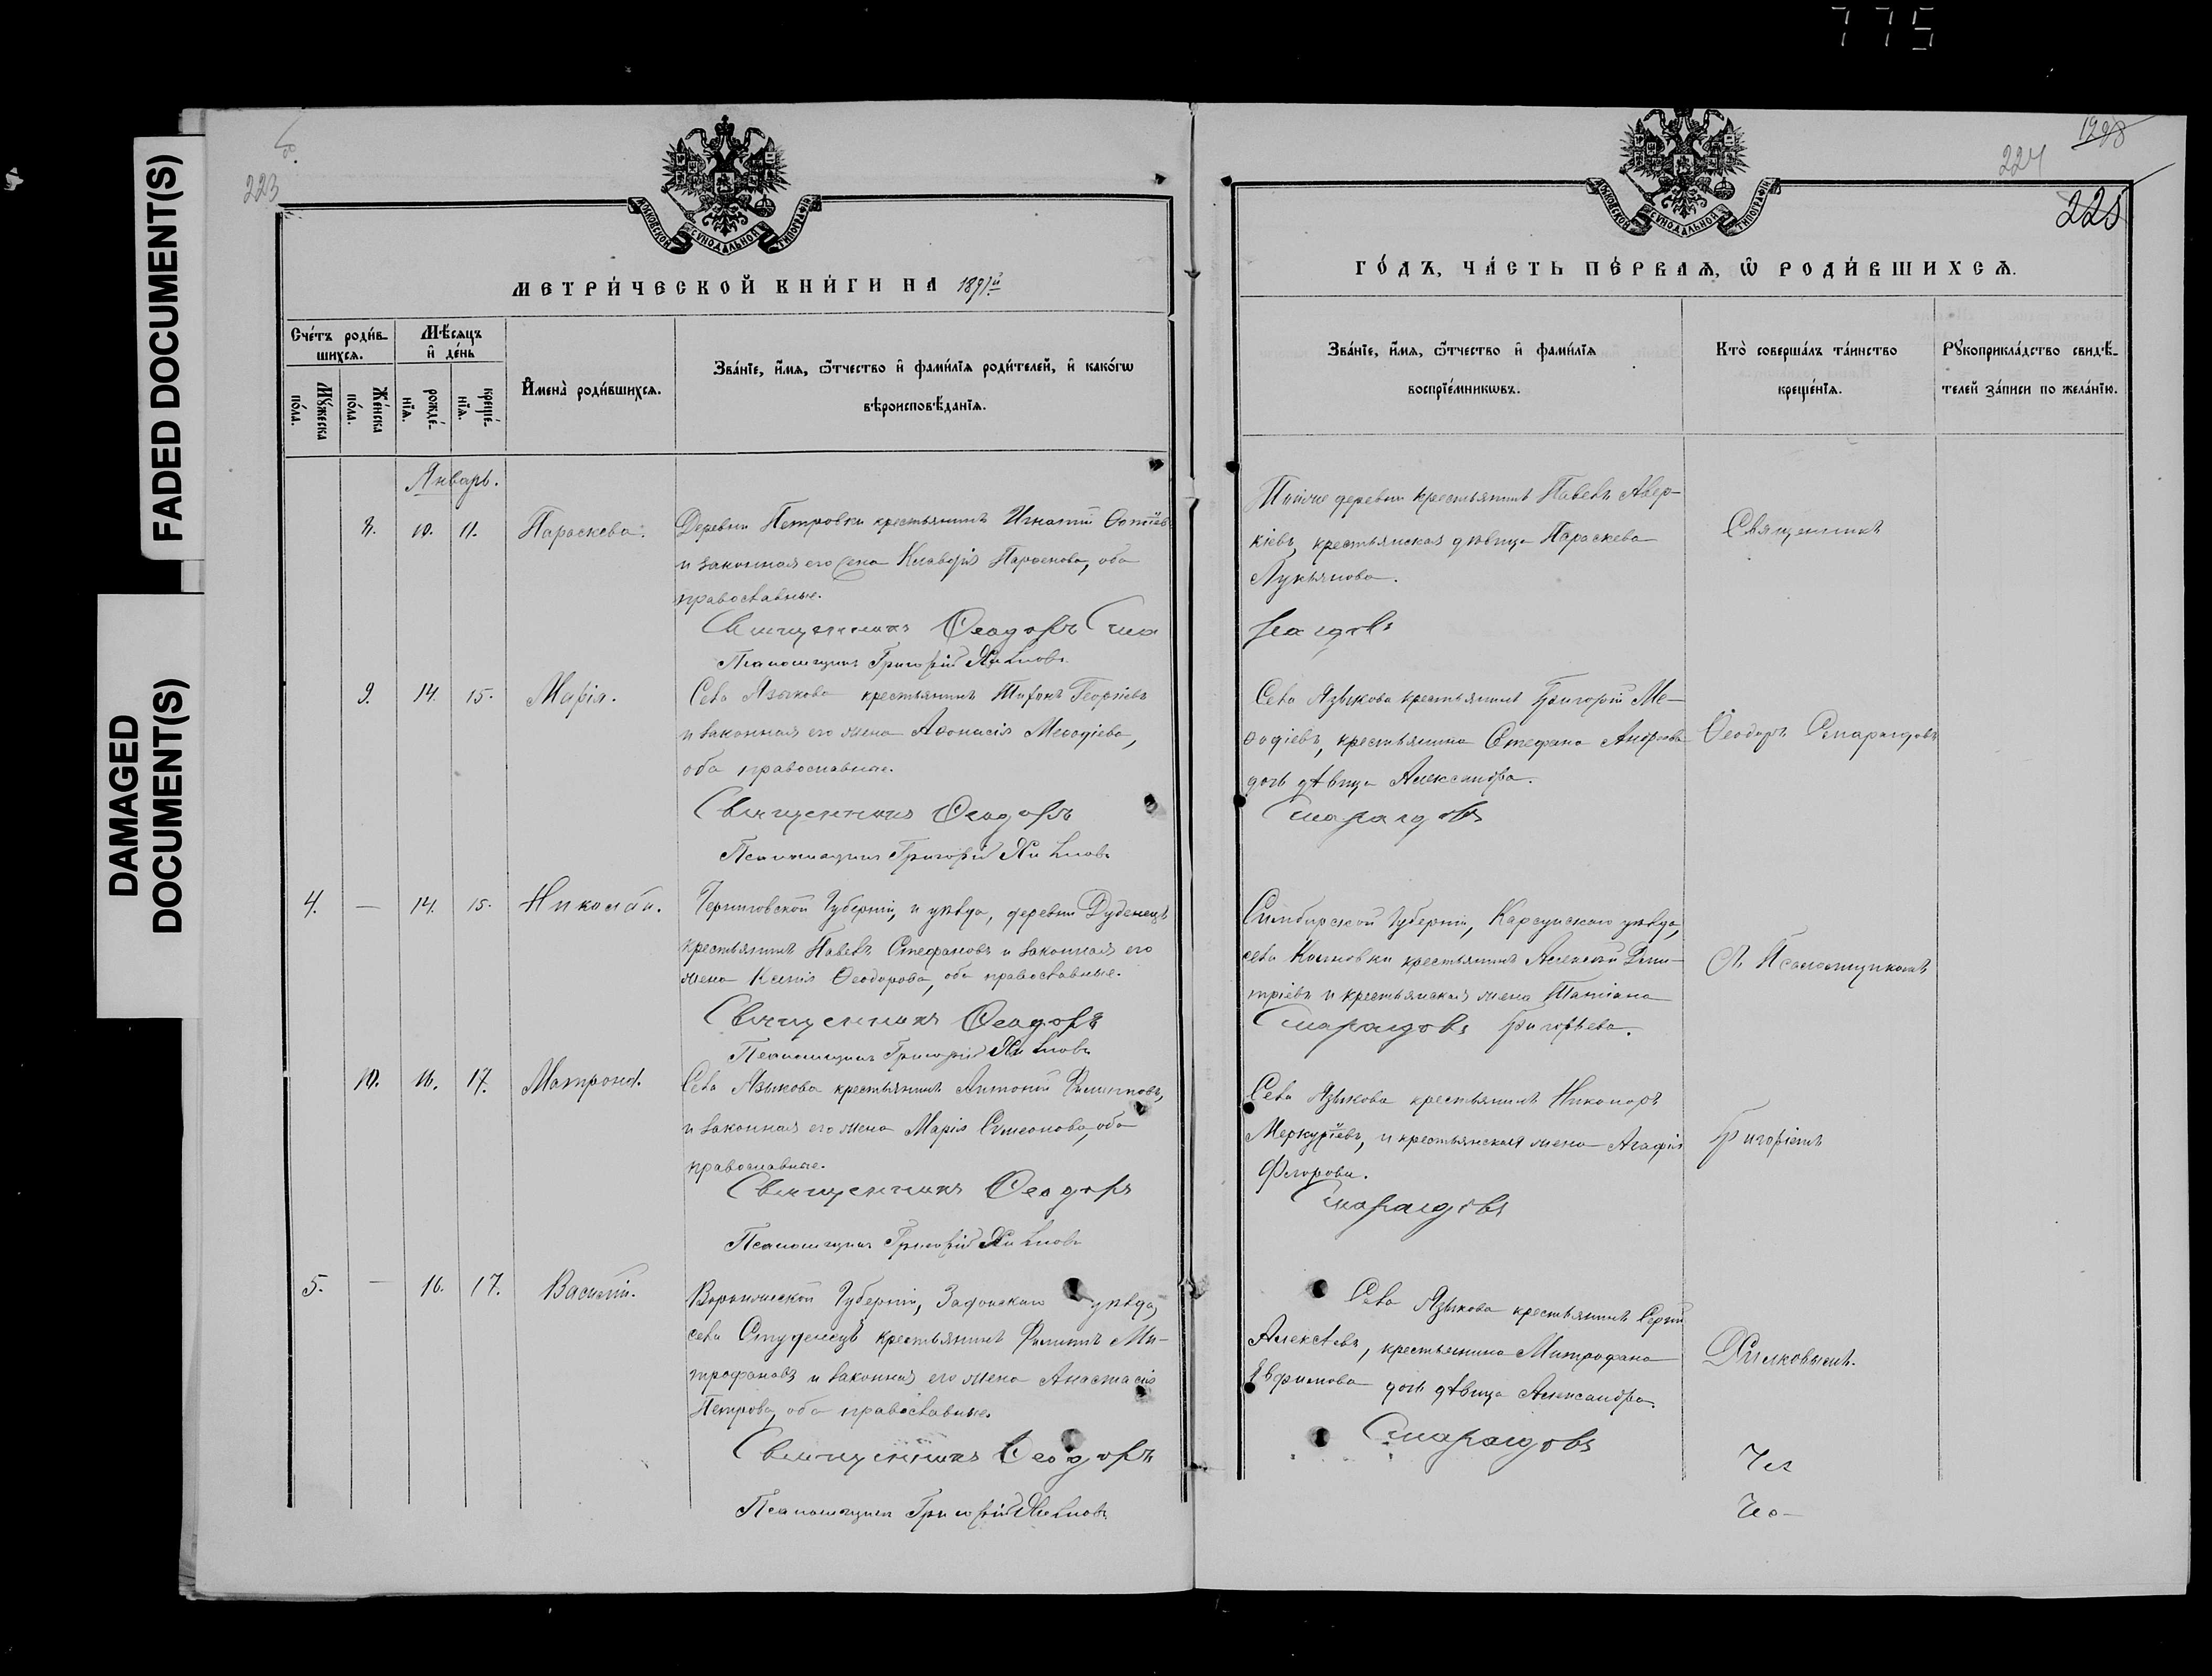 775
FADED DOCUMENT(S)
DAMAGED
DOCUMENT(S)
223
МОСКОВСКОЙ СѴНОДАЛЬНОЙ ТИПОГРАФІИ
МЕТРИ́ЧЕСКОЙ КНИ́ГИ НА 1891й
Сче́тъ роди́в-
шихсѧ.
Мѣ́сѧцъ
и҆ де́нь
Мꙋ́жеска
по́ла.
Же́нска
по́ла.
рожде́-
нїѧ.
креще́-
нїѧ.
И҆мена̀ роди́вшихсѧ.
Зва́нїе, и҆́мѧ, ѻ҆́тчество и҆ фами́лїѧ роди́телей, и҆ како́гѡ
вѣроисповѣ́данїѧ.
Январь.
8. 10. 11. Параскева.
Деревни Петровки крестьянинъ Игнатій
и законная его жена Клавдія, оба
православные.
Священникъ Ѳеодоръ Сма
Псаломщикъ Григорій
9. 14. 15. Марія.
Села Языкова крестьянинъ Тихонъ Георгіевъ
и законная его жена Аѳонасія Меѳодіева,
оба православные.
Священникъ Ѳеодоръ
Псаломщикъ Григорій
4. — 14. 15. Николай.
Черниговской Губерніи, и уѣзда, деревни
крестьянинъ Павелъ Стефановъ и законная его
жена Ксенія Ѳеодорова, оба православные.
Священникъ Ѳеодоръ
Псаломщикъ Григорій
10. 16. 17. Матрона.
Села Языкова крестьянинъ Антоній Филипповъ,
и законная его жена Марія Симеонова, оба
православные.
Священникъ Ѳеодоръ
Псаломщикъ Григорій
5. — 16. 17. Василій.
Воронежской Губерніи, Задонскаго уѣзда,
села Студенецъ крестьянинъ Филиппъ Ми-
трофановъ и законная его жена Анастасія
Петрова, оба православные.
Священникъ Ѳеодоръ
Псаломщикъ Григорій
224
225
МОСКОВСКОЙ СѴНОДАЛЬНОЙ ТИПОГРАФІИ
ГО́ДЪ, ЧА́СТЬ ПЕ́РВАѦ, Ѡ҆ РОДИ́ВШИХСѦ.
Зва́нїе, и҆́мѧ, ѻ҆́тчество и҆ фами́лїѧ
воспрїе́мникѡвъ.
Кто̀ соверша́лъ та́инство
креще́нїѧ.
Рꙋкоприкла́дство свидѣ́-
телей за́писи по жела́нїю.
Тойже деревни крестьянинъ Павелъ Авер-
кіевъ, крестьянская дѣвица Параскева
Лукьянова.
рагдовъ
Священникъ
Села Языкова крестьянинъ Григорій Ме-
ѳодіевъ, крестьянина Стефана Андреева
дочь дѣвица Александра.
Смарагдовъ
Ѳеодоръ Смарагдовъ
Симбирской Губерніи, Карсунскаго уѣзда,
села крестьянинъ Алексій Дими-
тріевъ и крестьянская жена Татіана
Смарагдовъ Григорьева.
съ Псаломщикомъ
Села Языкова крестьянинъ Никаноръ
Меркуріевъ, и крестьянская жена Агафія
Смарагдовъ
Григоріемъ
Села Языкова крестьянинъ Сергій
Алексѣевъ, крестьянина Митрофана
Евфимова дочь дѣвица Александра.
Смарагдовъ